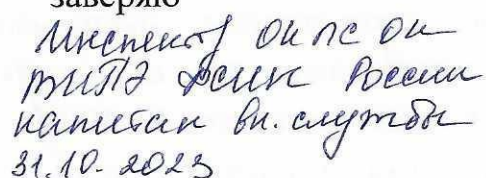 заверяю
Инспектор ОК ЛС ОК
ВИПЭ ФСИН России
капитан вн. службы
31.10.2023